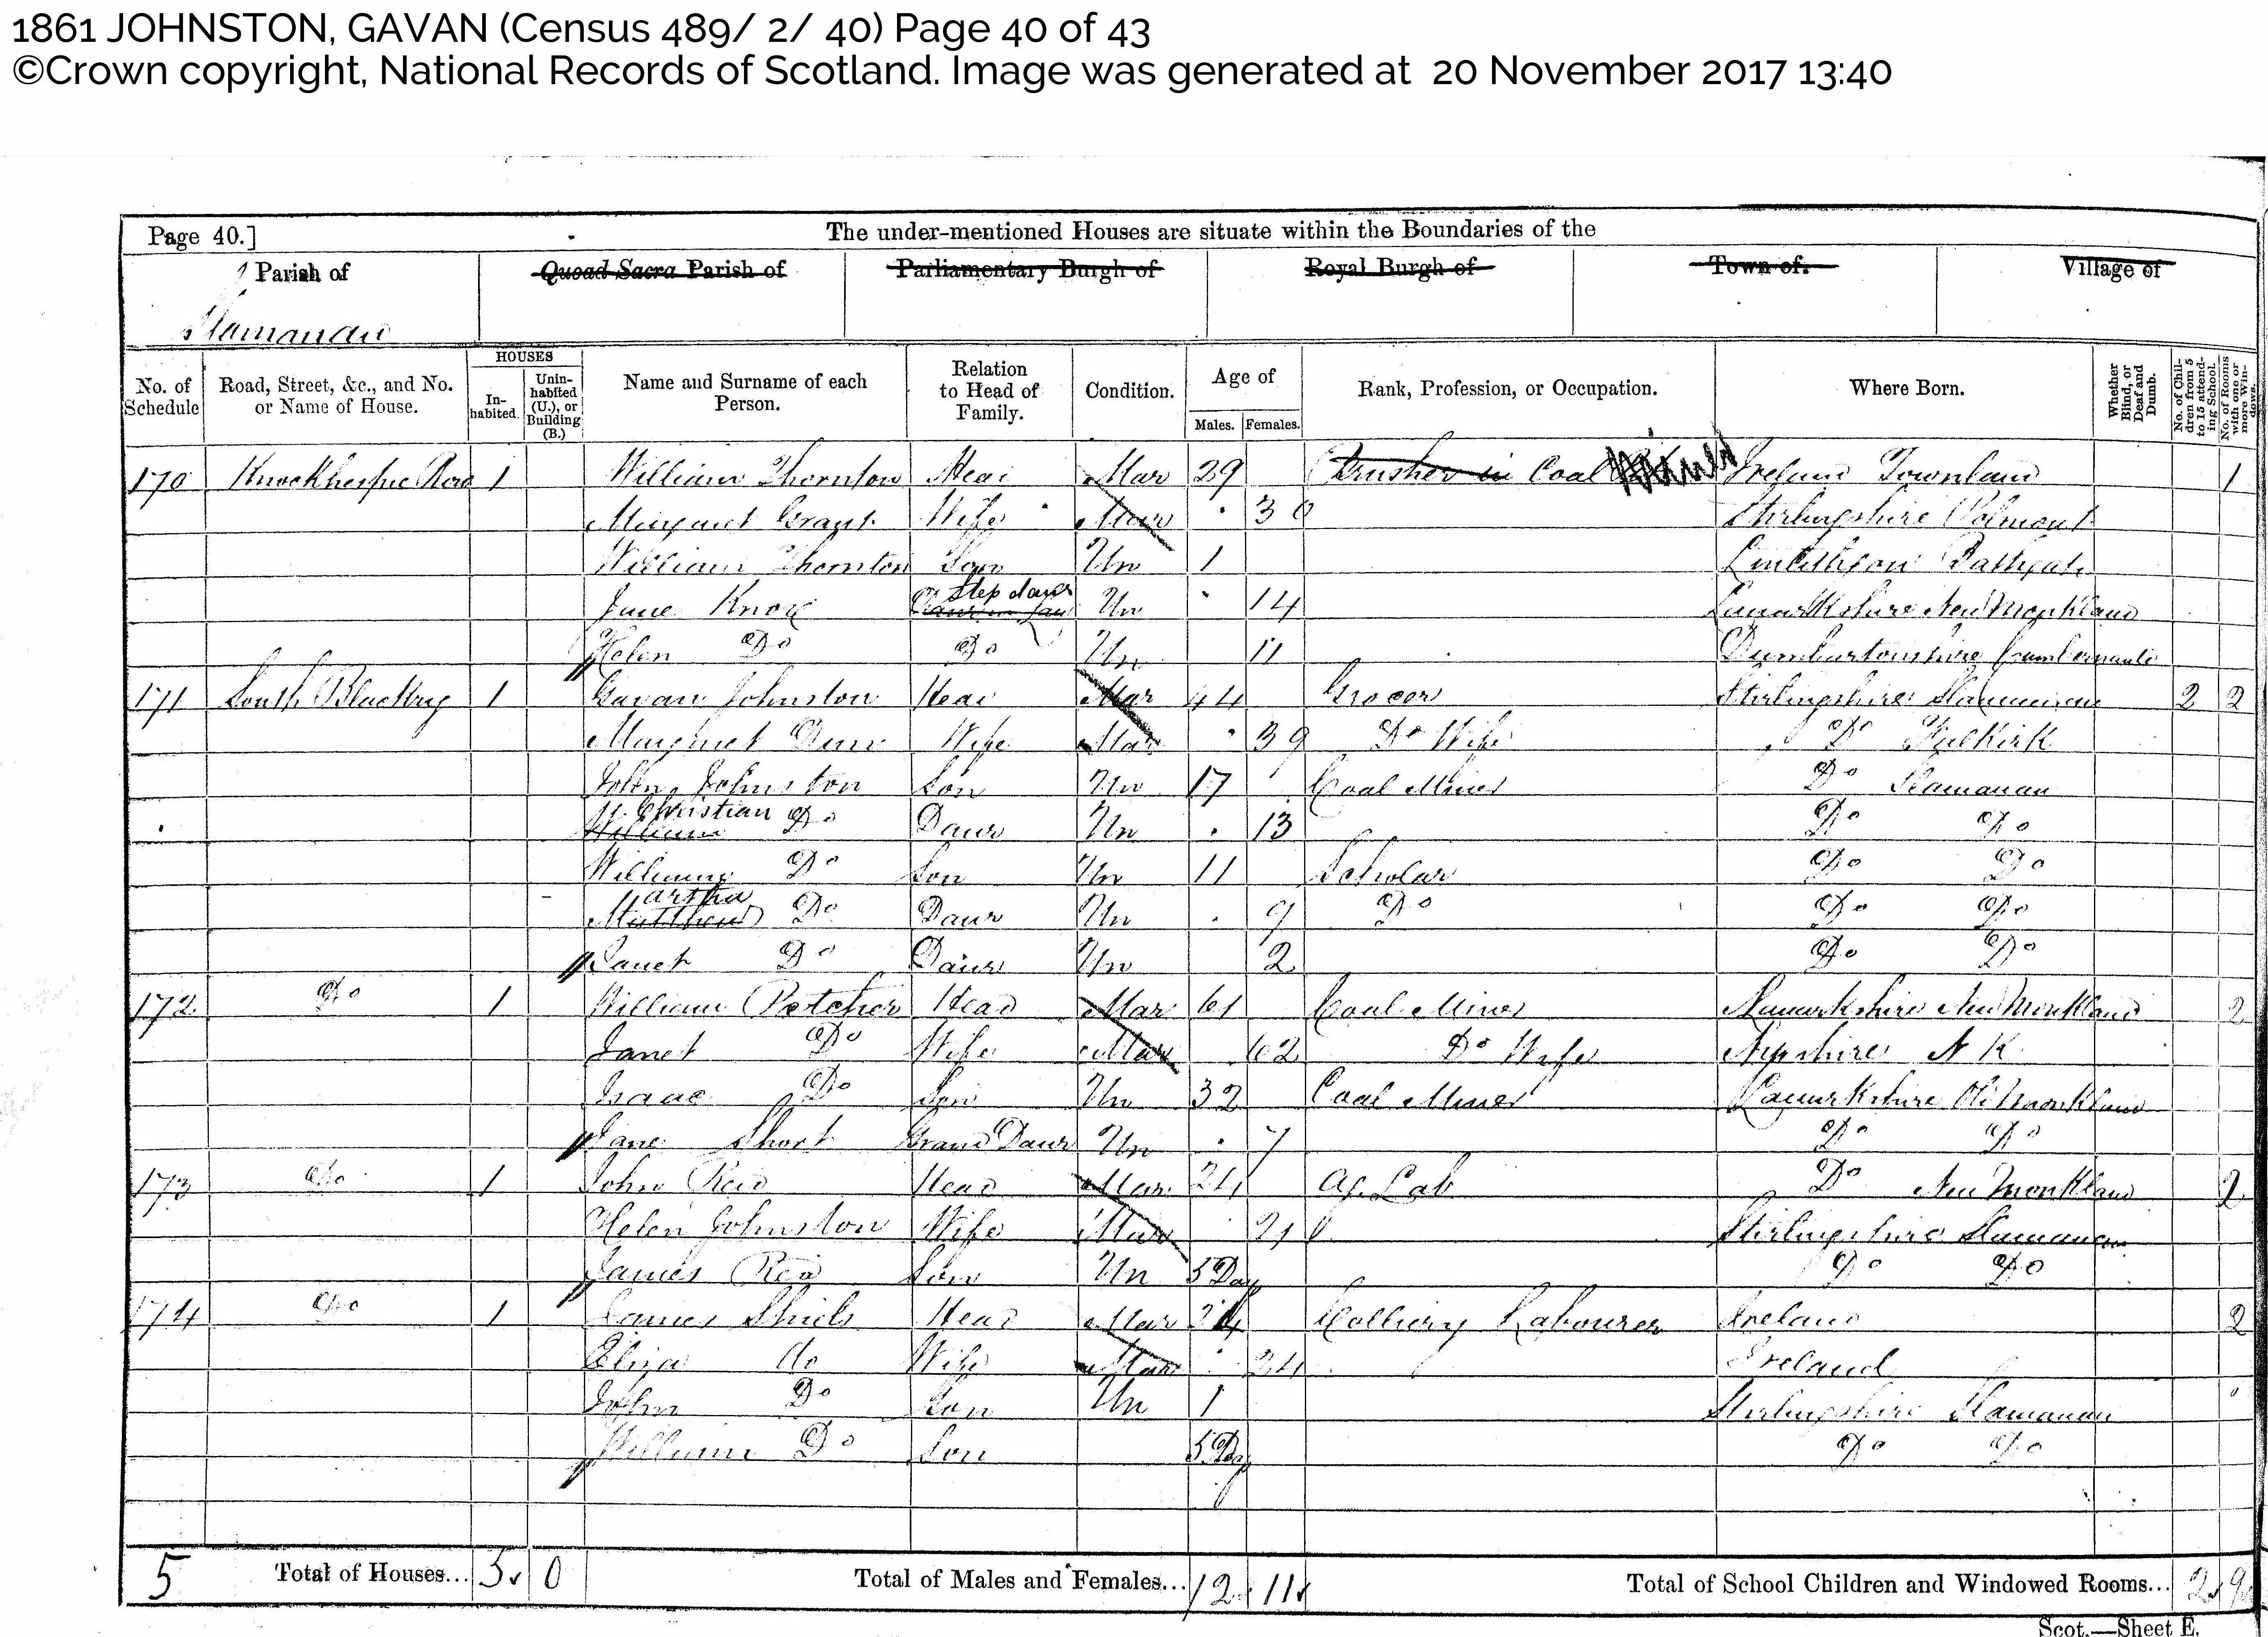 1861 JOHNSTON, GAVAN (Census 489/ 2/ 40) Page 40 of 43
©Crown copyright, National Records of Scotland. Image was generated at 20 November 2017 13:40
Page 40.] The under-mentioned Houses are situate within the Boundaries of the
Parish of Quoad Sacra Parish of Parliamentary Burgh of Royal Burgh of Town of. Village of
Slamanan
No. of Schedule Road, Street, &c., and No. or Name of House. HOUSES In-habited. Unin-habited (U.), or Building (B.) Name and Surname of each Person. Relation to Head of Family. Condition. Age of Males. Females. Rank, Profession, or Occupation. Where Born. Whether Blind, or Deaf and Dumb. No. of Chil-dren from 5 to 15 attend-ing School. No. of Rooms with one or more Win-dows.
170 Row 1 William Thornton Head Mar 29 Brusher in Coal Ireland 1
Margaret Grant Wife Mar 30 Stirlingshire Polmont
William Thornton Son Un 1 Linlithgow Bathgate
Jane Knox Step daur Un 14 Lanarkshire New Monkland
Helen Do Do Un 11 Dumbartonshire Cumbernauld
171 South 1 Gavan Johnston Head Mar 44 Grocer Stirlingshire Slamanan 2 2
Margaret Wife Mar 39 Do Wife Do Falkirk
John Johnston Son Un 17 Coal Miner Do Slamanan
Christian William Do Daur Un 13 Do Do
William Do Son Un 11 Scholar Do Do
Martha Matthew Do Daur Un 9 Do Do Do
Janet Do Daur Un 2 Do Do
172 Do 1 William Petcher Head Mar 61 Coal Miner Lanarkshire New Monkland 2
Janet Do Wife Mar 62 Do Wife Ayrshire N K
Isaac Do Son Un 32 Coal Miner Lanarkshire Old Monkland
Jane Short Grand Daur Un 7 Do Do
173 Do 1 John Reid Head Mar 24 Ag. Lab Do New Monkland 2
Helen Johnston Wife Mar 21 Stirlingshire Slamanan
James Reid Son Un 5 Day Do Do
174 Do 1 James Shiels Head Mar Colliery Labourer Ireland 2
Eliza do Wife Mar 24 Ireland
John Do Son Un 1 Stirlingshire Slamanan
William Do Son 5 Day Do Do
5 Total of Houses... 5 0 Total of Males and Females... 12 11 Total of School Children and Windowed Rooms... 2 9
Scot.—Sheet E.